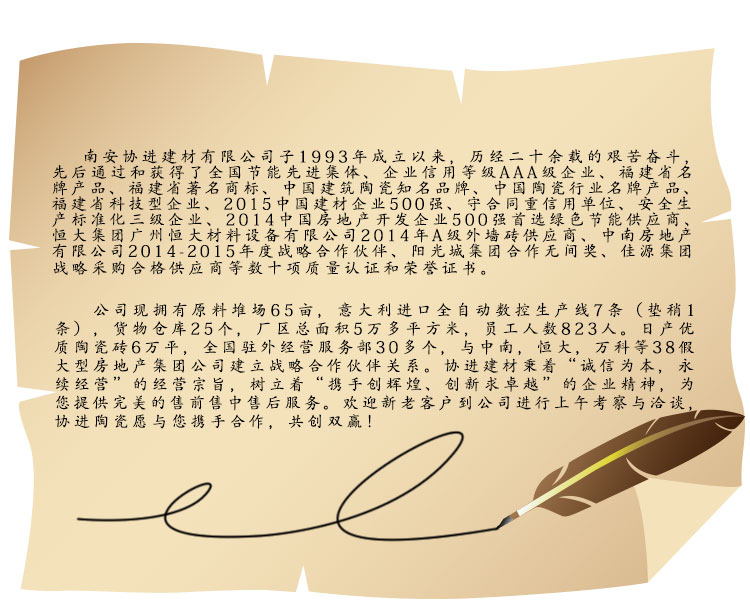 南安协进建材有限公司子1993年成立以来，历经二十余载的艰苦奋斗，
先后通过和获得了全国节能先进集体、企业信用等级AAA级企业、福建省名
牌产品、福建省著名商标、中国建筑陶瓷知名品牌、中国陶瓷行业名牌产品、
福建省科技型企业、2015中国建材企业500强、守合同重信用单位、安全生
产标准化三级企业、2014中国房地产开发企业500强首选绿色节能供应商、
恒大集团广州恒大材料设备有限公司2014年A级外墙砖供应商、中南房地产
有限公司2014-2015年度战略合作伙伴、阳光城集团合作无间奖、佳源集团
战略采购合格供应商等数十项质量认证和荣誉证书。
公司现拥有原料堆场65亩，意大利进口全自动数控生产线7条（垫稍1
条），货物仓库25个，厂区总面积5万多平方米，员工人数823人。日产优
质陶瓷砖6万平，全国驻外经营服务部30多个，与中南，恒大，万科等38假
大型房地产集团公司建立战略合作伙伴关系。协进建材秉着“诚信为本，永
续经营”的经营宗旨，树立着“携手创辉煌、创新求卓越”的企业精神，为
您提供完美的售前售中售后服务。欢迎新老客户到公司进行上午考察与洽谈，
协进陶瓷愿与您携手合作，共创双赢！